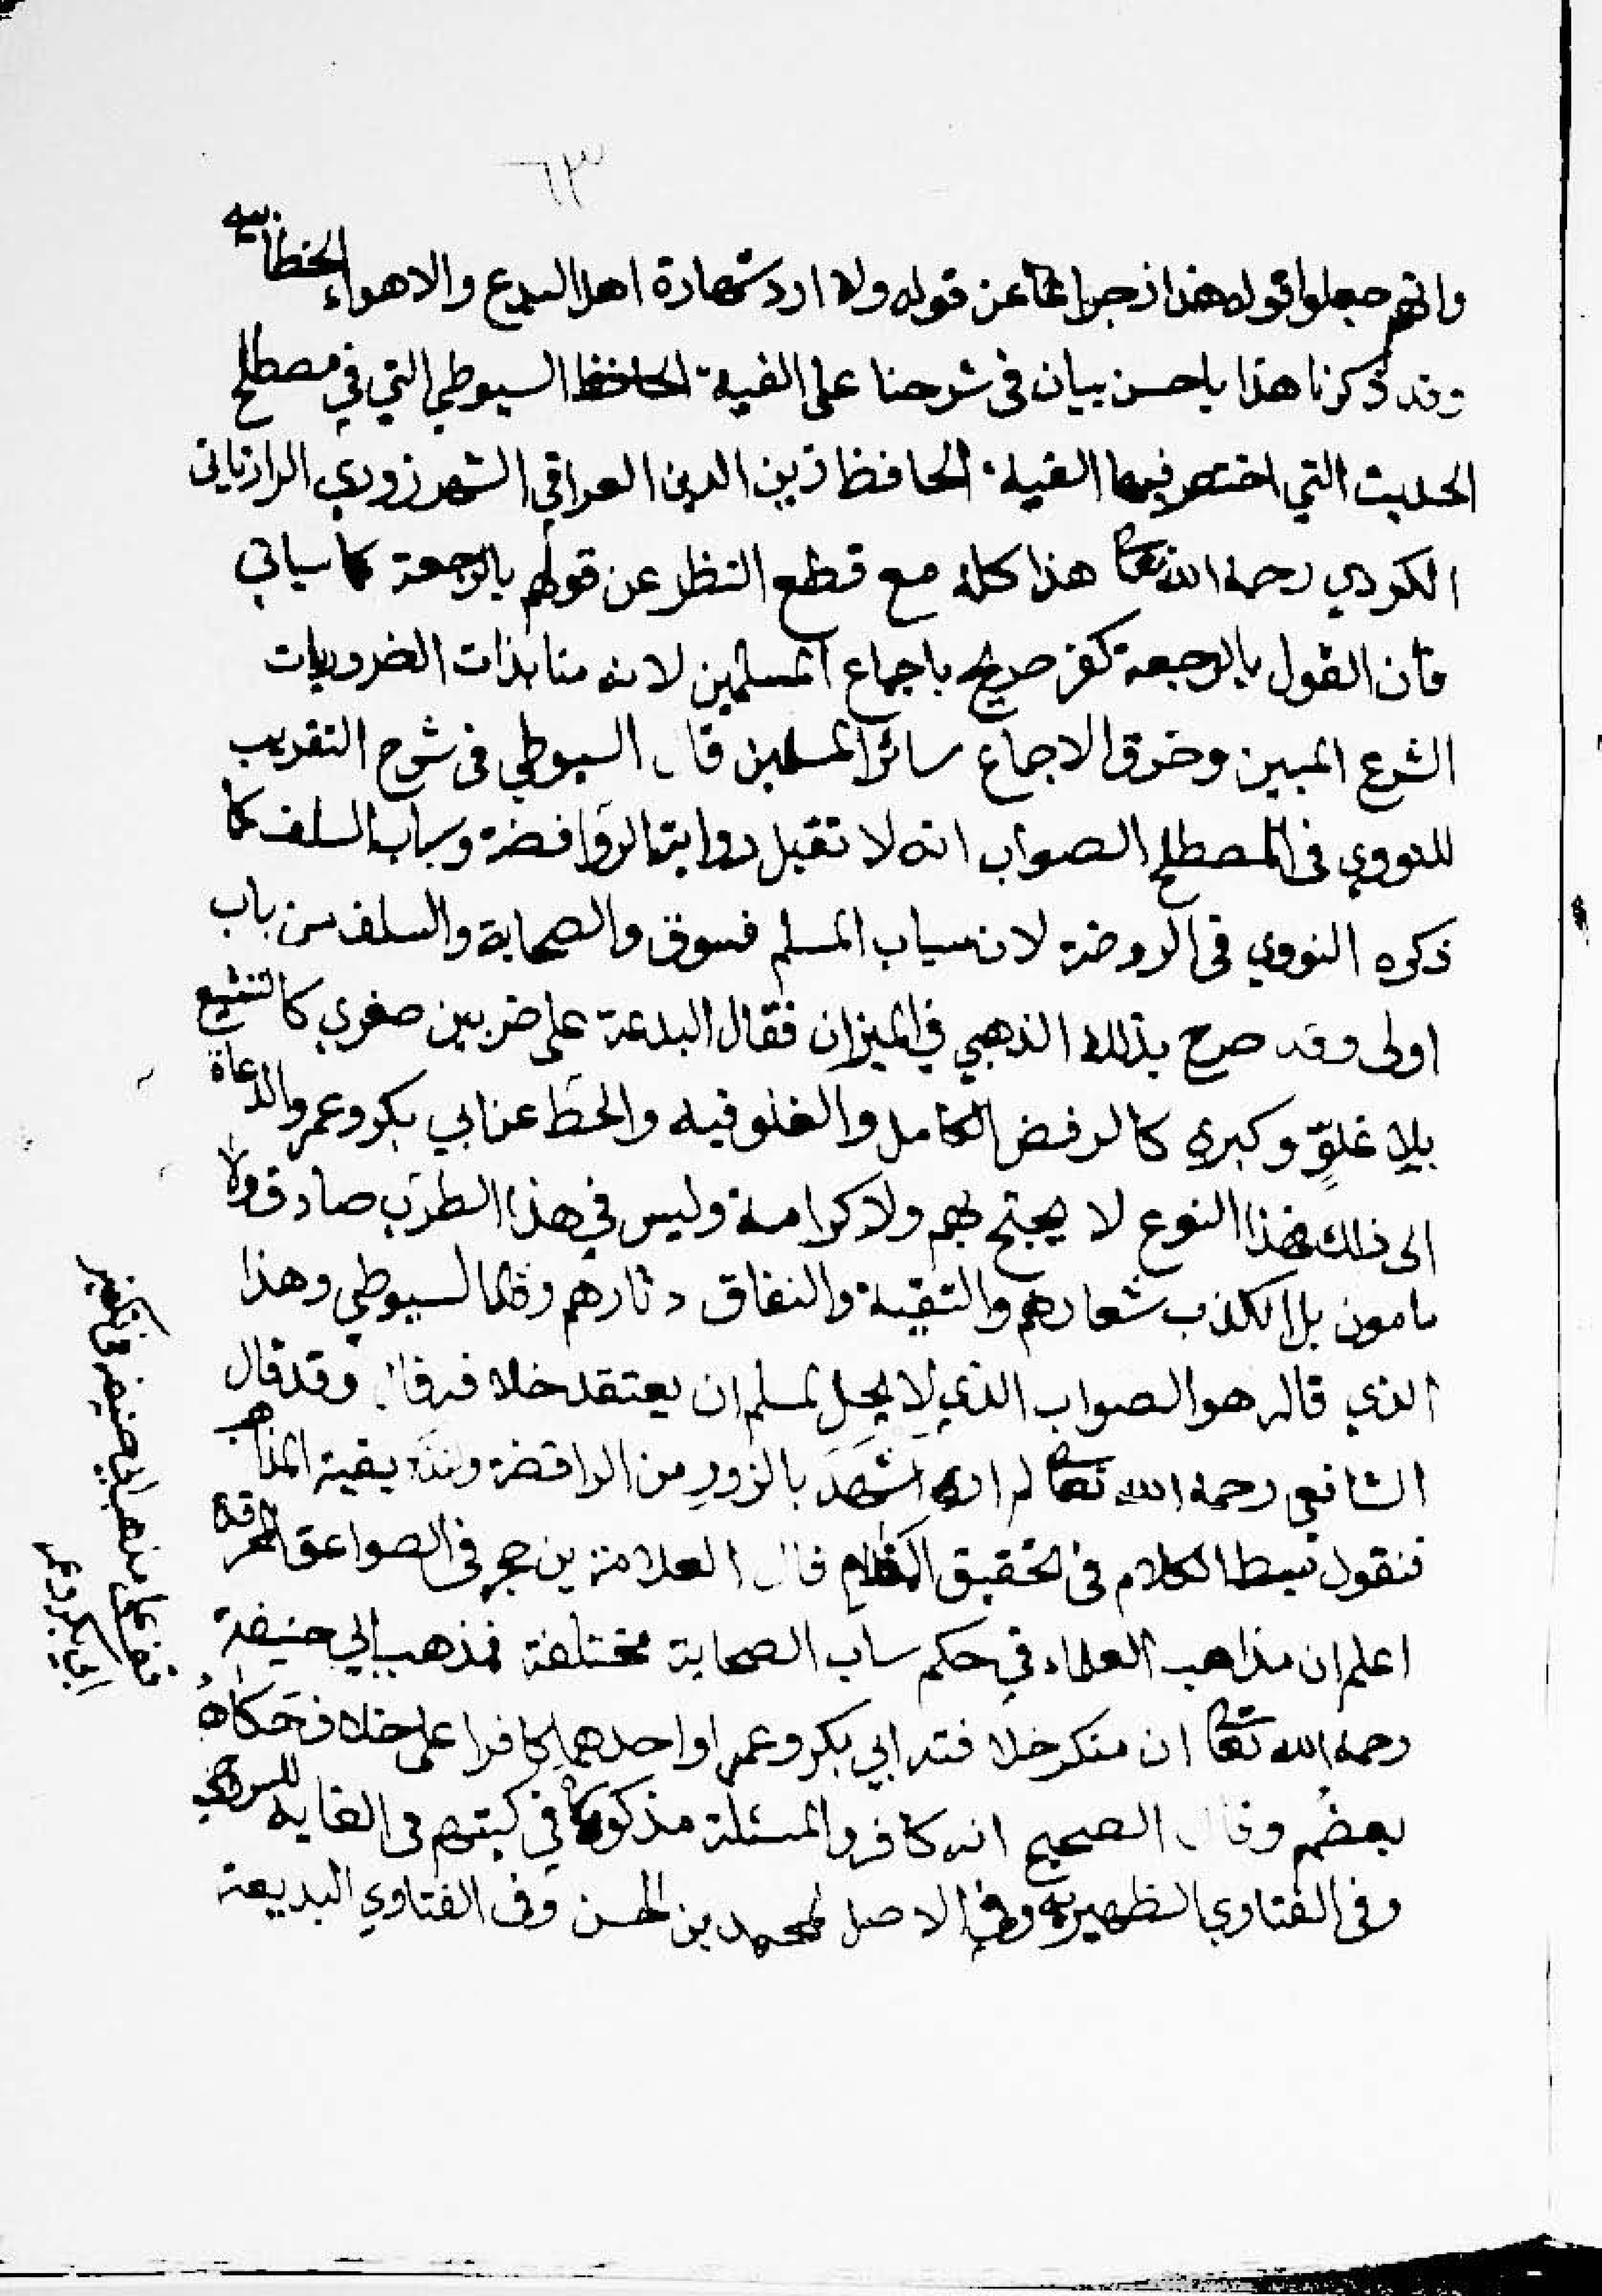 ٦٣
وانهم جعلوا قوله هذا رجوعا عن قوله ولا ارد شهادة اهل البدع والاهواء الخطابيه
وقد ذكرنا هذا باحسن بيان فى شرحنا على الفية الحافظ السيوطي التي في مصطلح
الحديث التي اختصر فيها الفية الحافظ زين الدين العراقي الشهرزوري الرازناني
الكردي رحمه الله تعا هذا كله مع قطع النظر عن قولهم بالرجعة كما سياتي
فان القول بالرجعة كفر صريح باجماع المسلمين لانه منابذات الضروريات
الشرع المبين وخرق الاجماع سائر المسلمين قال السيوطي فى شرح التقريب
للنووي فى المصطلح الصواب انه لا تقبل رواية الروافضة وساب السلف كما
ذكره النووي فى الروضة لان سباب المسلم فسوق والصحابة والسلف من باب
اولى وقد صرح بذلك الذهبي في الميزان فقال البدعة على ضربين صغرى كالتشيع
بلا غلوٍّ وكبرى كالرفض الكامل والغلو فيه والحط عن ابي بكر وعمر والدعاة
الى ذلك فهذا النوع لا يحتج بهم ولا كرامة وليس في هذا الضرب صادق ولا
مامون بل الكذب شعارهم والتقية والنفاق دثارهم وقال السيوطي وهذا
الذي قاله هو الصواب الذي لا يحل لمسلم ان يعتقد خلافه قال وقد قال
الشافعي رحمه الله تعا لم ار اشهَدَ بالزورِ من الرافضة بقية المذاهب
فنقول نبسط الكلام فى تحقيق المقام قال العلامة بن حجر فى الصواعق المحرقة
اعلم ان مذاهب العلماء في حكم ساب الصحابة مختلفة فمذهب ابي حنيفة
رحمه الله تعا ان منكر خلافته ابي بكر وعمر او احدهما كافرا على خلاف حكاهُ
بعضهم وقال الصحيح انه كافر والمسئلة مذكورة في كتبهم فى الغايه للسروجي
وفى الفتاوي الظهيريه وفى الاصل لمحمد بن الحسن وفى الفتاوي البديعة
قف على مذهب ابي حنيفه في تكفير
ابي بكر وعمر